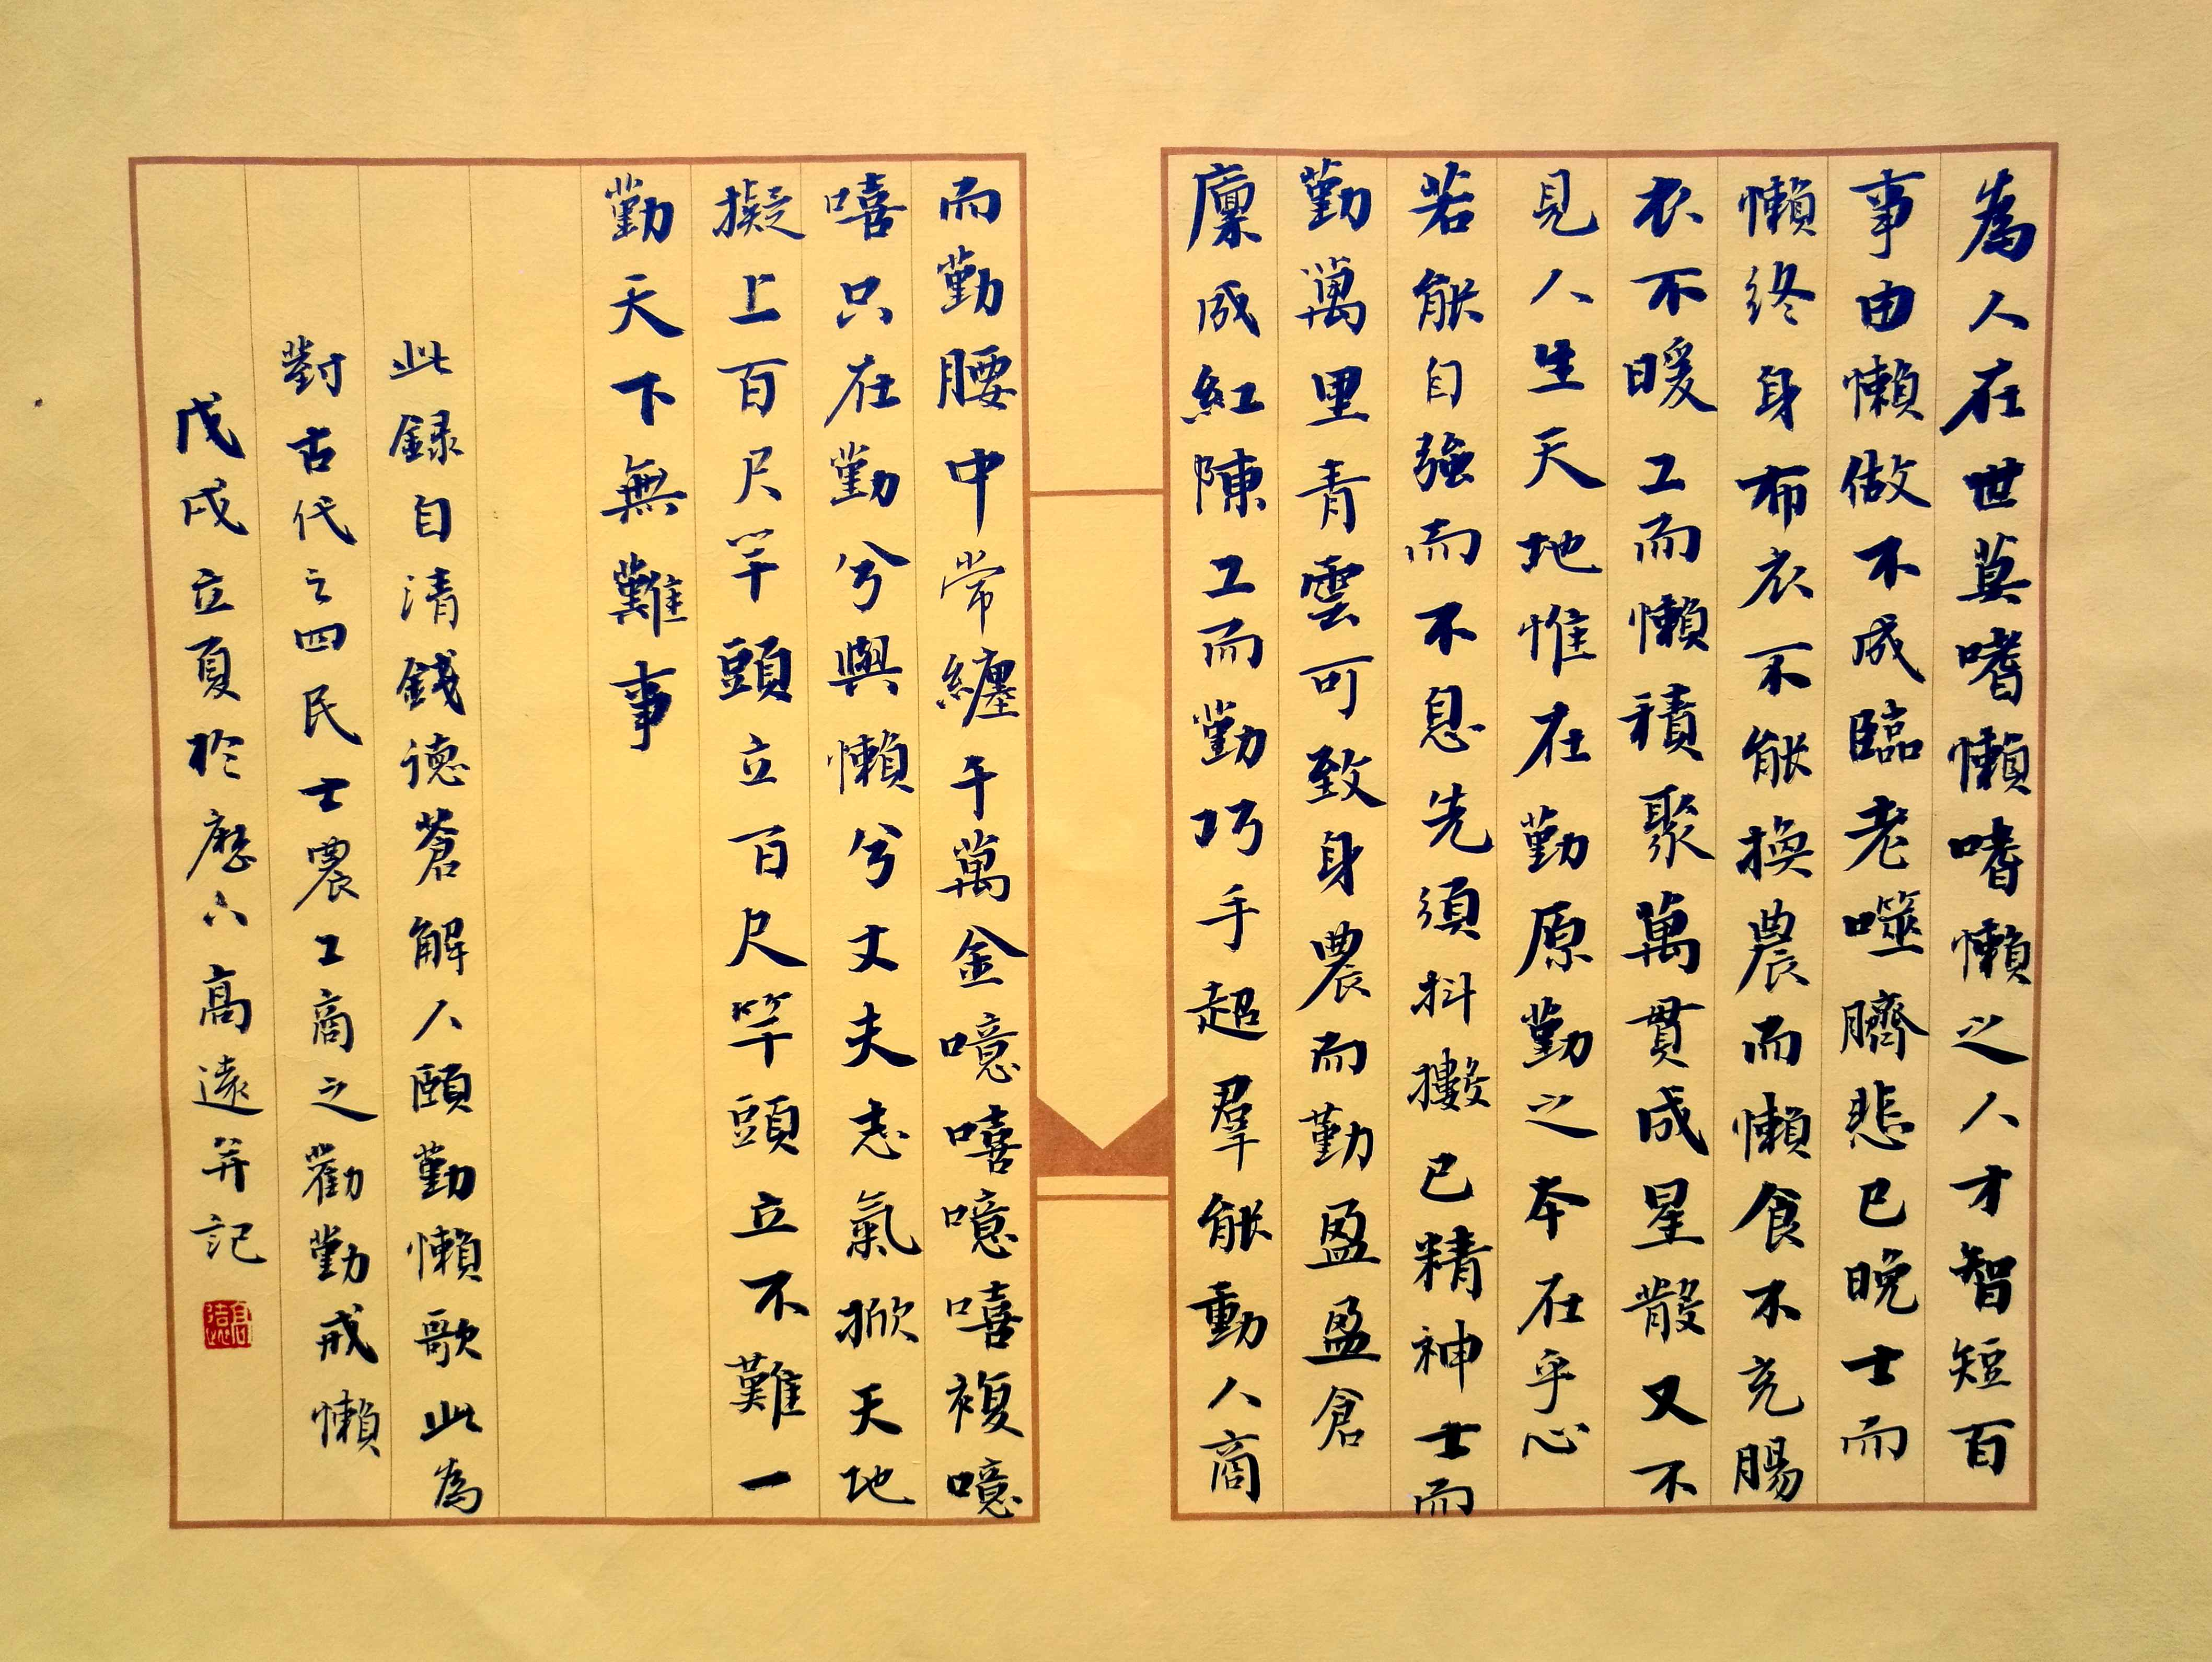 為人在世莫嗜懶嗜懶之人才智短百
事由懶做不成臨老噬臍悲已晚士而
懶終身布衣不能換農而懶食不充腸
衣不暖工而懶積聚萬貫成星散又不
見人生天地惟在勤原勤之本在乎心
若能自強而不息先須抖擻已精神士而
勤萬里青雲可致身農而勤盈盈倉
廩成紅陳工而勤巧手超羣能動人商
而勤腰中常纏千萬金噫嘻噫嘻複噫
嘻只在勤兮與懶兮丈夫志氣掀天地
擬上百尺竿頭立百尺竿頭立不難一
勤天下無難事
此録自清錢德蒼解人頤勤懶歌此為
對古代之四民士農工商之勸勤戒懶
戊戌立夏於歷下高遠并記
高遠